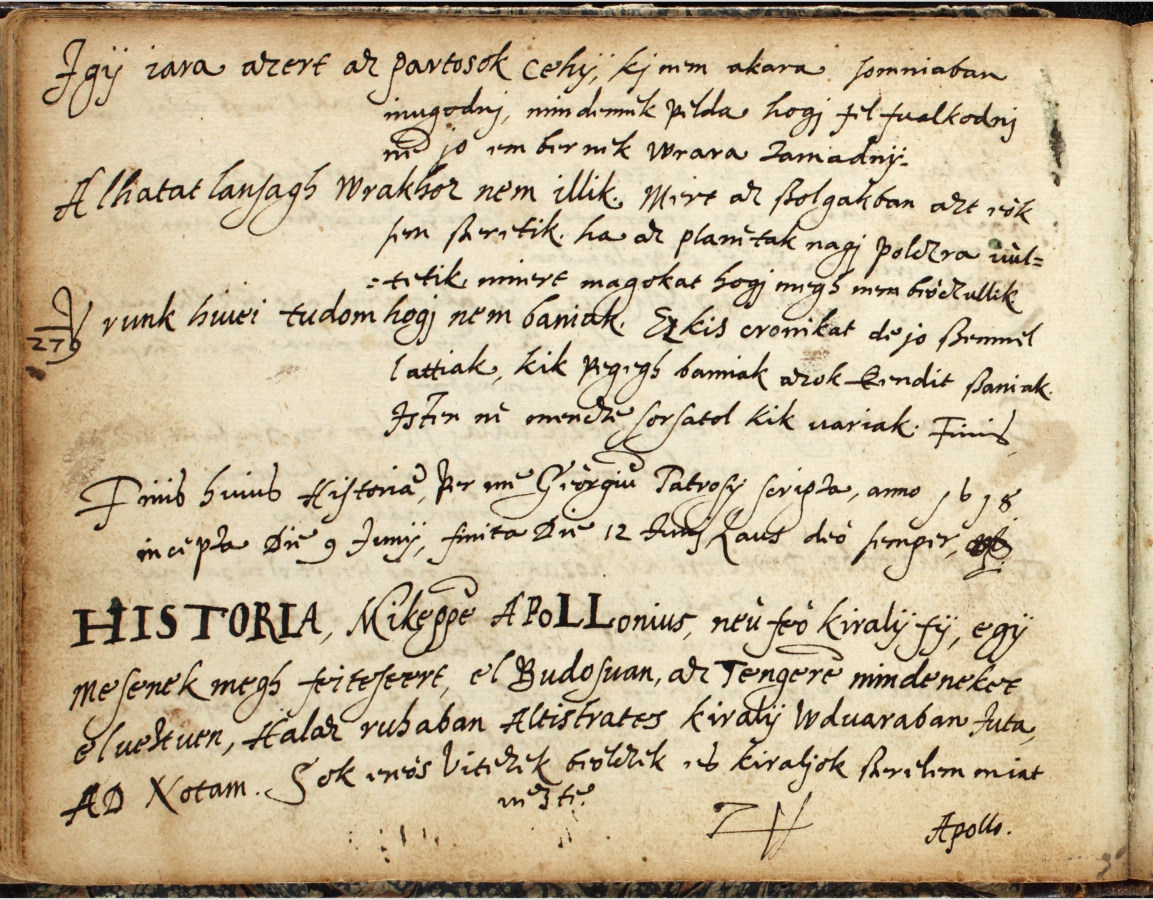 Igÿ iara azert az partosok Cehÿ, kj nem akara somniaban
niugodnj, mindennek pelda hogj fel fualkodnj
ne jo embernek Wrara tamadnÿ.
Alhatatlansagh Wrakhoz nem illik. Mert az szolgakban azt eök
sem szeretik. ha az planetak nagj polczra uùl=
=tetik, minert magokat hogj megh nem beöczullik
Vrunk hiuei tudom hogj nem baniak. Ez kis cronikat de jo szemmel
279
lattiak, kik pegegh banniak azok Kendit szaniak.
Isten ne mencze sorsatol kik variak. Finis
Finis huius Historiae, per me Georgiu Patrosÿ scripta, anno 1618
incepta Die 9 Junij, finita Die 12 Junij Laus deo semper,
HISTORIA, Mikeppe APOLLonius, neù feò kiralÿ fÿ, egÿ
mesenek megh feiteseert, el Budosuan, az Tengere mindeneket
eluesztuen, Halaz ruhaban Altistrates kiralÿ Wduaraban Iuta,
AD Notam. Sok eneòs Vitezek beòlczek es kiraljok szerelem miat
Apollo.